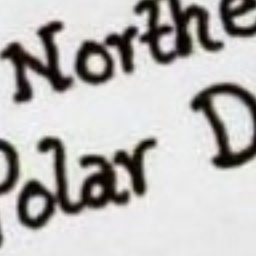 Northe
Polar D